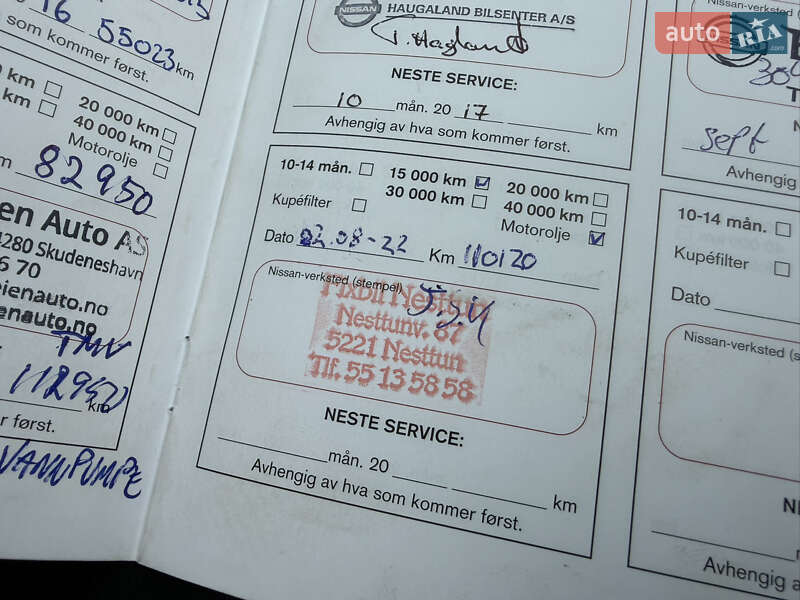 16 55023 km
som kommer først.
20 000 km
40 000 km
Motorolje
82950
en Auto AS
4280 Skudeneshavn
6 70
eienauto.no
ienauto.no
TMV
112950 km
er først.
VANNPUMPE
NISSAN
HAUGALAND BILSENTER A/S
T. Hagland
NESTE SERVICE:
10 mån. 20 17 km
Avhengig av hva som kommer først.
10-14 mån.
15 000 km
20 000 km
30 000 km
40 000 km
Kupéfilter
Motorolje
Dato 02.08-22 Km 110120
Nissan-verksted (stempel)
Fixbil Nesttun
Nesttunv. 87
5221 Nesttun
Tlf. 55 13 58 58
NESTE SERVICE:
mån. 20 km
Avhengig av hva som kommer først.
Nissan-verksted
auto RIA .com
sept
Avhengig
10-14 mån.
Kupéfilter
Dato
Nissan-verksted
Avhengig